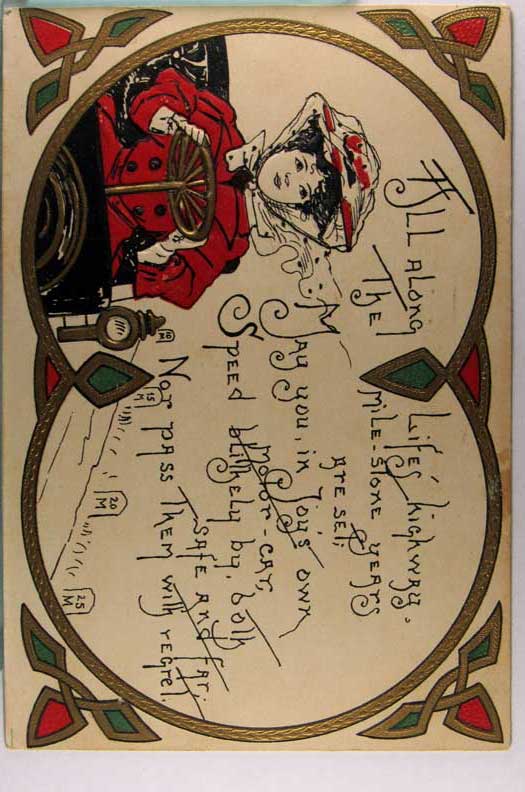 All along Life's highway.
The mile-stone years
are set;
May you, in Joy's own
motor-car,
Speed blithely by, both
safe and far;
Not pass them with regret.
10
M
15
M
20
M
25
M